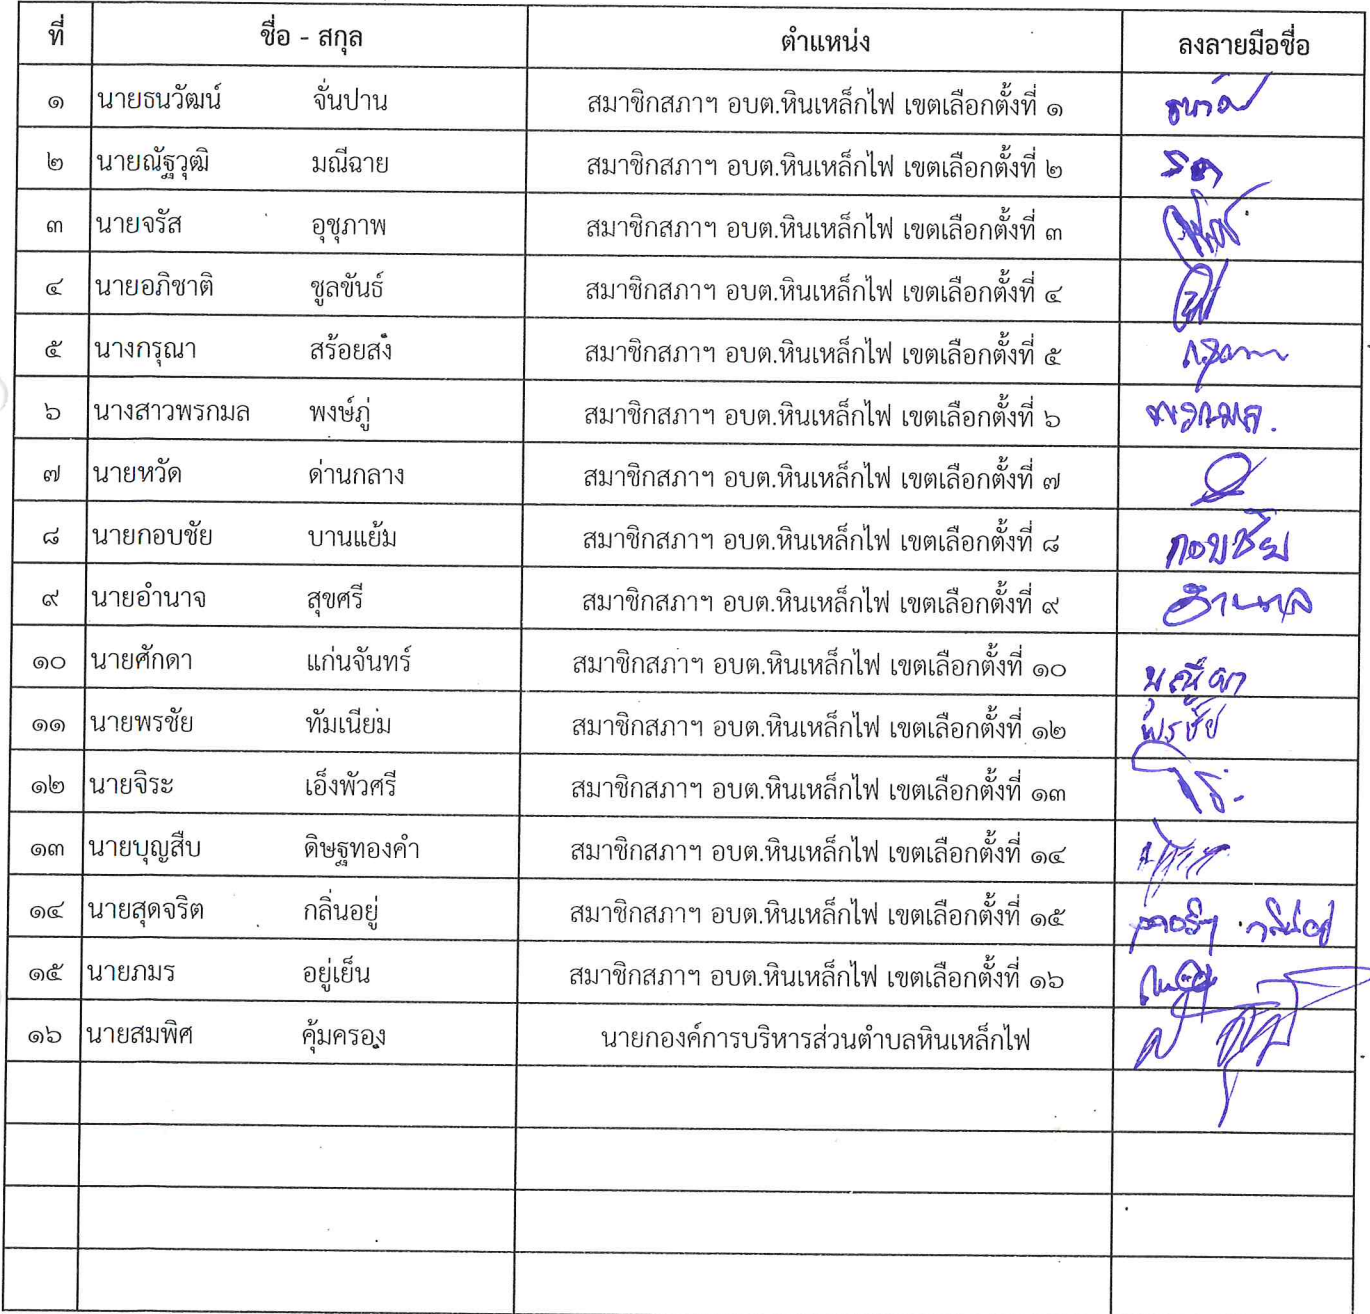 ที่ ชื่อ - สกุล ตำแหน่ง ลงลายมือชื่อ
๑ นายธนวัฒน์ จั่นปาน สมาชิกสภาฯ อบต.หินเหล็กไฟ เขตเลือกตั้งที่ ๑ ธนวัฒ
๒ นายณัฐวุฒิ มณีฉาย สมาชิกสภาฯ อบต.หินเหล็กไฟ เขตเลือกตั้งที่ ๒
๓ นายจรัส อุชุภาพ สมาชิกสภาฯ อบต.หินเหล็กไฟ เขตเลือกตั้งที่ ๓
๔ นายอภิชาติ ชูลขันธ์ สมาชิกสภาฯ อบต.หินเหล็กไฟ เขตเลือกตั้งที่ ๔
๕ นางกรุณา สร้อยสง สมาชิกสภาฯ อบต.หินเหล็กไฟ เขตเลือกตั้งที่ ๕ กรุณา
๖ นางสาวพรกมล พงษ์ภู่ สมาชิกสภาฯ อบต.หินเหล็กไฟ เขตเลือกตั้งที่ ๖ พรกมล.
๗ นายหวัด ด่านกลาง สมาชิกสภาฯ อบต.หินเหล็กไฟ เขตเลือกตั้งที่ ๗
๘ นายกอบชัย บานแย้ม สมาชิกสภาฯ อบต.หินเหล็กไฟ เขตเลือกตั้งที่ ๘ กอบชัย
๙ นายอำนาจ สุขศรี สมาชิกสภาฯ อบต.หินเหล็กไฟ เขตเลือกตั้งที่ ๙ อำนาจ
๑๐ นายศักดา แก่นจันทร์ สมาชิกสภาฯ อบต.หินเหล็กไฟ เขตเลือกตั้งที่ ๑๐
๑๑ นายพรชัย ทัมเนียม สมาชิกสภาฯ อบต.หินเหล็กไฟ เขตเลือกตั้งที่ ๑๒ พรชัย
๑๒ นายจิระ เอ็งพัวศรี สมาชิกสภาฯ อบต.หินเหล็กไฟ เขตเลือกตั้งที่ ๑๓ จิระ
๑๓ นายบุญสืบ ดิษฐทองคำ สมาชิกสภาฯ อบต.หินเหล็กไฟ เขตเลือกตั้งที่ ๑๔
๑๔ นายสุดจริต กลิ่นอยู่ สมาชิกสภาฯ อบต.หินเหล็กไฟ เขตเลือกตั้งที่ ๑๕ กลิ่นอยู่
๑๕ นายภมร อยู่เย็น สมาชิกสภาฯ อบต.หินเหล็กไฟ เขตเลือกตั้งที่ ๑๖
๑๖ นายสมพิศ คุ้มครอง นายกองค์การบริหารส่วนตำบลหินเหล็กไฟ